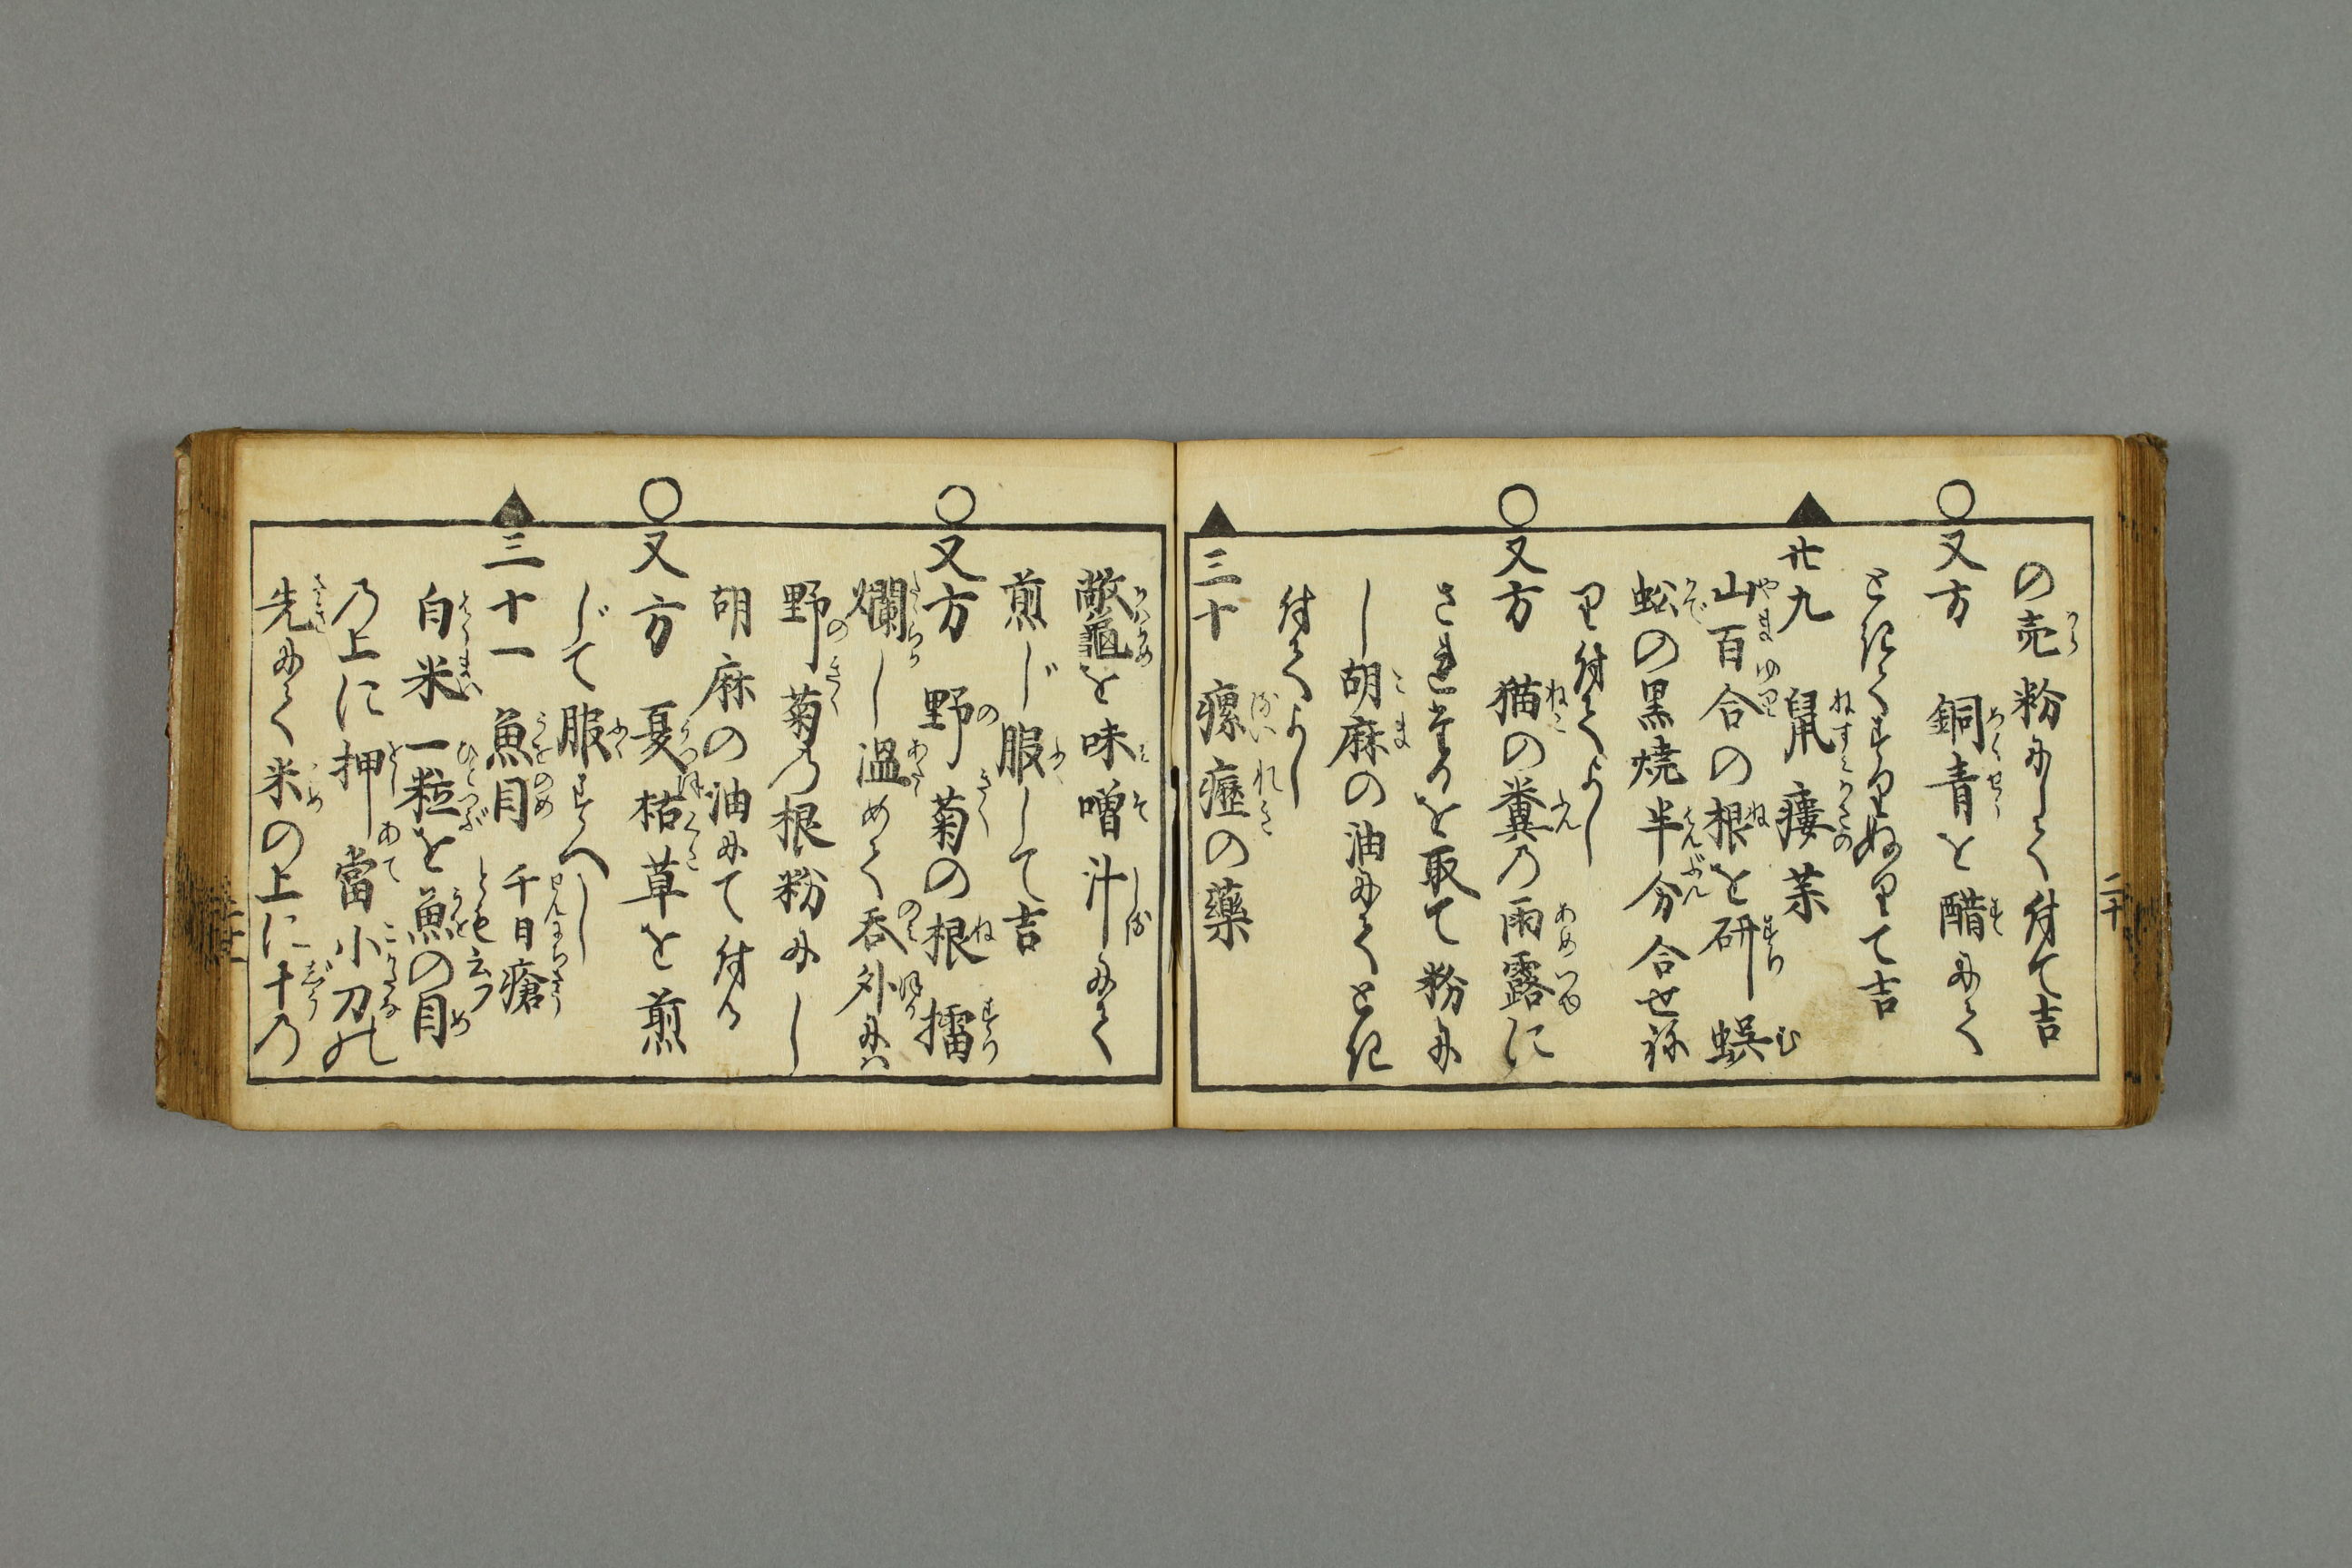 の売粉にして付て吉
○又方　銅青を醋にて
ときてすりぬりて吉
▲廿九　鼠瘻茱
山百合の根を研　蜈
蚣の黒焼半分合せ祢
り付てよし
○又方　猫の糞の雨露に
されたるを取て粉に
し胡麻の油にてとき
付てよし
▲三十　瘰癧の藥
二十
鼈を味噌汁にて
煎じ服して吉
○又方　野菊の根擂
爛し温めて呑外にハ
野菊の根粉にし
胡麻の油にて付る
○又方　夏枯草を煎
じて服すべし
▲三十一　魚目　千日瘡とも云フ
白米一粒を魚の目
の上に押當小刀の
先にて米の上に十の